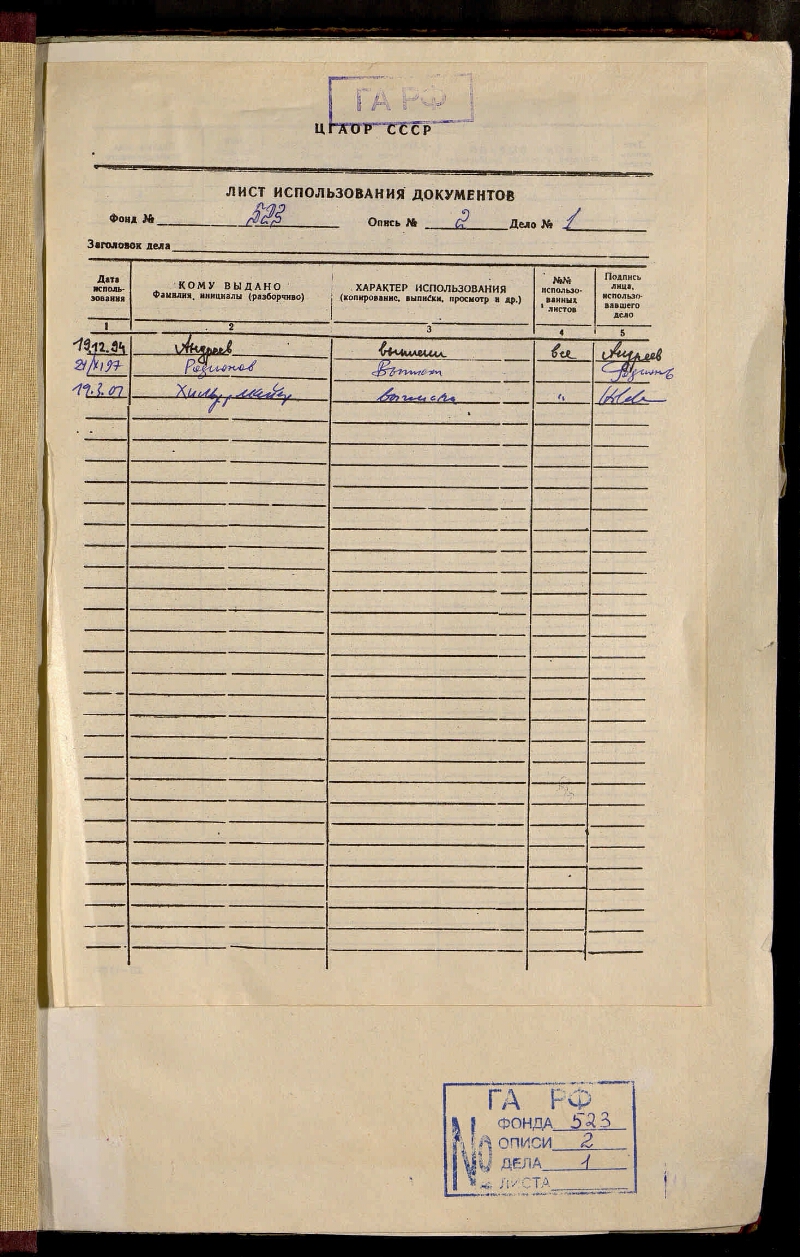 ГА РФ
ЦГАОР СССР
ЛИСТ ИСПОЛЬЗОВАНИЯ ДОКУМЕНТОВ
Фонд № 523 Опись № 2 Дело № 1
Заголовок дела
Дата исполь-зования
КОМУ ВЫДАНО
Фамилия, инициалы (разборчиво)
ХАРАКТЕР ИСПОЛЬЗОВАНИЯ
(копирование, выписки, просмотр и др.)
№№ использо-ванных листов
Подпись лица, использо-вавшего дело
1 2 3 4 5
19.12.94 Андреев выписки все Андреев
Родионов
19.3.07 выписки "
ГА РФ
№
ФОНДА 523
ОПИСИ 2
ДЕЛА 1
ЛИСТА